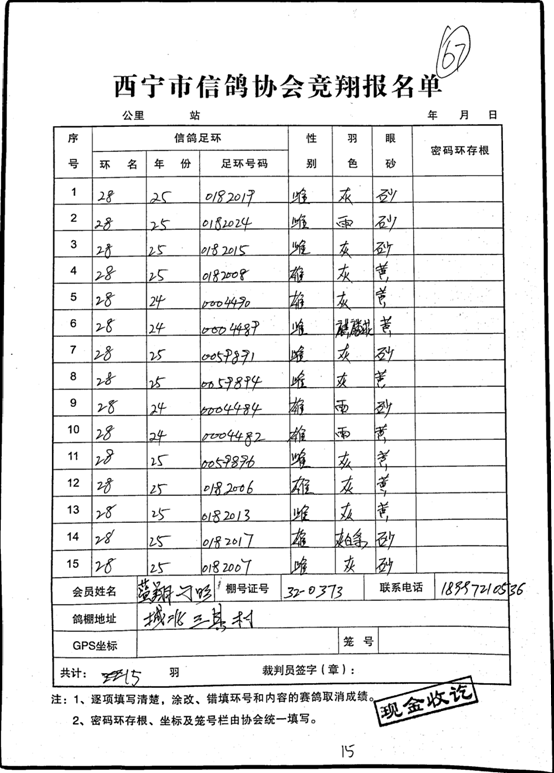 67
西宁市信鸽协会竞翔报名单
公里 站 年 月 日
序号 信鸽足环 性别 羽色 眼砂 密码环存根
环名 年份 足环号码
1 28 25 0182019 雌 灰 砂
2 28 25 0182024 雌 雨 砂
3 28 25 0182015 雌 灰 砂
4 28 25 0182008 雄 灰 黄
5 28 24 0004490 雄 灰 黄
6 28 24 0004489 雌 黄
7 28 25 0059891 雌 灰 砂
8 28 25 0059894 雌 灰 黄
9 28 24 0004484 雄 雨 砂
10 28 24 0004482 雄 雨 黄
11 28 25 0059896 雌 灰 黄
12 28 25 0182006 雄 灰 黄
13 28 25 0182013 雌 灰 黄
14 28 25 0182017 雄 砂
15 28 25 0182007 雌 灰 砂
会员姓名 棚号证号 32-0373 联系电话 18997210536
鸽棚地址 村
GPS坐标 笼号
共计: 15 羽 裁判员签字(章):
注:1、逐项填写清楚,涂改、错填环号和内容的赛鸽取消成绩。
2、密码环存根、坐标及笼号栏由协会统一填写。
现金收讫
15